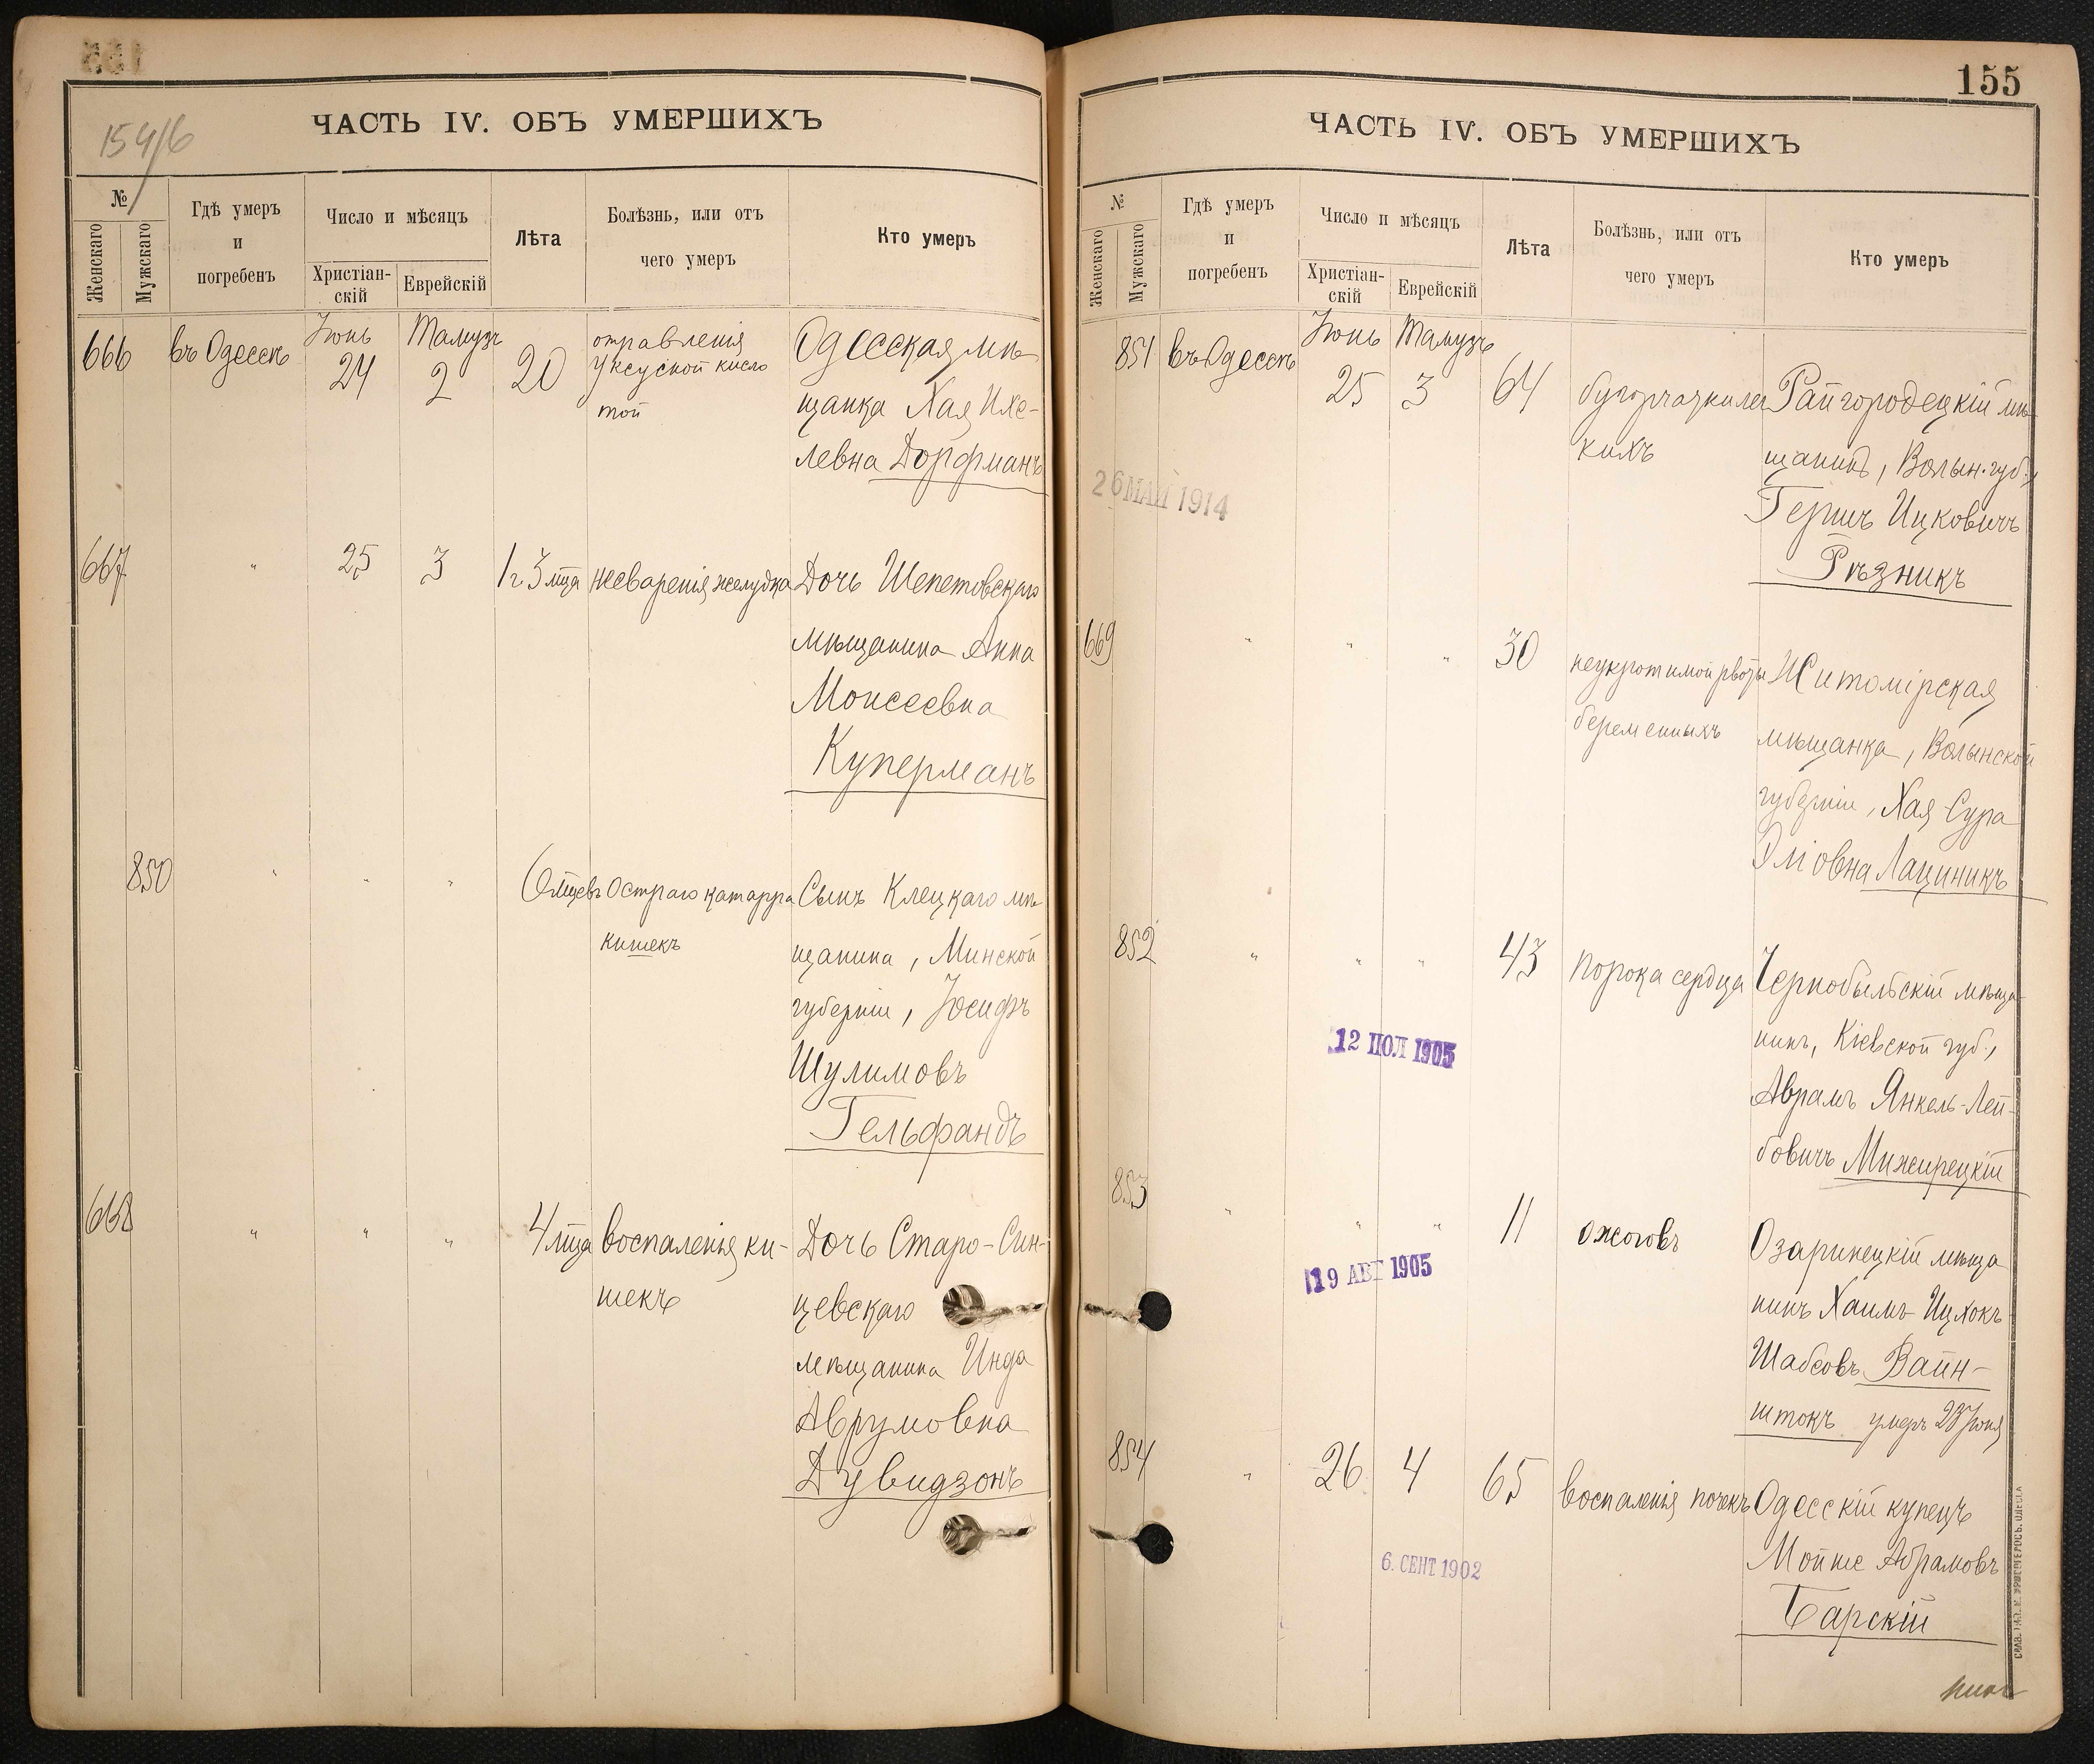 155
154/6
ЧАСТЬ IV. ОБЪ УМЕРШИХЪ
№
Женскаго
Мужскаго
Гдѣ умеръ
и
погребенъ
Число и мѣсяцъ
Христіан-
скій
Еврейскій
Лѣта
Болѣзнь, или отъ
чего умеръ
Кто умеръ
666 въ Одессѣ Іюнь 24 Тамузъ 2 20
отравленія
уксусной кисло
той
Одесская мѣ-
щанка Хая Ихе-
левна Дорфманъ
667 " 25 3 1 г 3 мца несваренія желудка
Дочь Шепетовскаго
мѣщанина Анна
Моисеевна
Куперманъ
850 " " " 6 мцевъ Остраго катарра
кишекъ
Сынъ Клецкаго мѣ-
щанина, Минской
губерніи, Іосифъ
Шулимовъ
Гельфандъ
668 " " " 4 мца воспаленія ки-
шекъ
Дочь Старо-Син-
цевскаго
мѣщанина Инда
Аврумовна
Дувидзонъ
155
ЧАСТЬ IV. ОБЪ УМЕРШИХЪ
№
Женскаго
Мужскаго
Гдѣ умеръ
и
погребенъ
Число и мѣсяцъ
Христіан-
скій
Еврейскій
Лѣта
Болѣзнь, или отъ
чего умеръ
Кто умеръ
851 въ Одессѣ Іюнь 25 Тамузъ 3 64
бугорчатки лег
кихъ
Райгородецкій мѣ-
щанинъ, Волын. губ.,
Гершъ Ицковичъ
Рѣзникъ
26 МАЙ 1914
669 " " " 30 неукротимой рвоты
беременныхъ
Житомірская
мѣщанка, Волынской
губерніи, Хая-Сура
Эліовна Лациникъ
852 " " " 43 порока сердца
Чернобыльскій мѣща-
нинъ, Кіевской губ.,
Аврамъ Янкель-Лей-
бовичъ Мижирецкій
12 ІЮЛ 1905
853 " " " 11 ожоговъ
Озаринецкій мѣща
нинъ Хаимъ-Ицхокъ
Шабсовъ Вайн-
штокъ умеръ 23 Іюня
19 АВГ 1905
854 " 26 4 65 воспаленія почекъ
Одесскій купецъ
Мойше Абрамовъ
Барскій
6. СЕНТ 1902